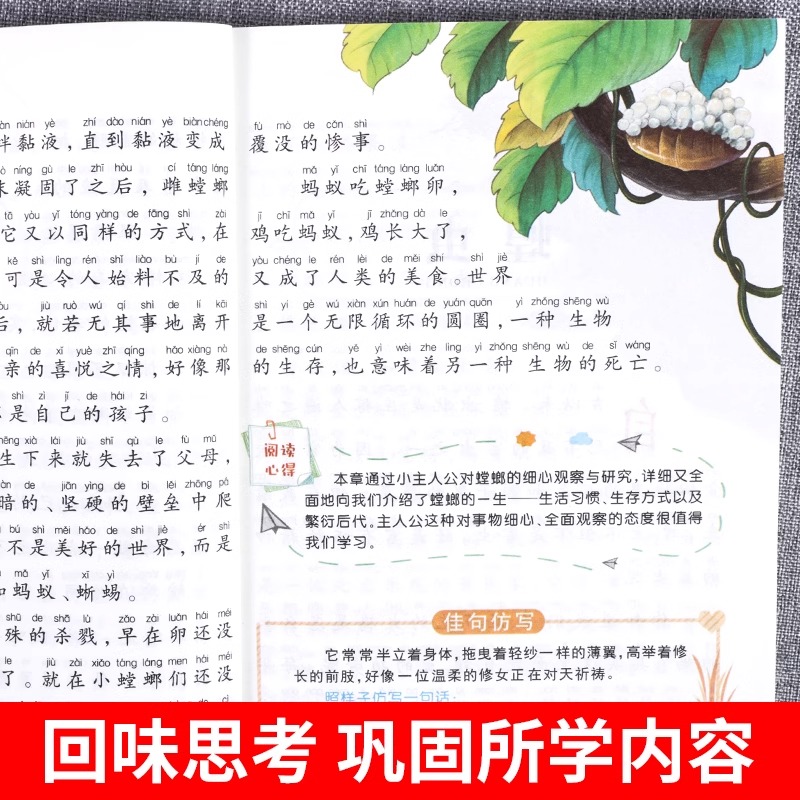 nián yè zhí dào nián yè biàn chéng
黏液，直到黏液变成
níng gù le zhī hòu cí táng láng
凝固了之后，雌螳螂
tā yòu yǐ tóng yàng de fāng shì zài
它又以同样的方式，在
kě shì lìng rén shǐ liào bù jí de
可是令人始料不及的
jiù ruò wú qí shì de lí kāi
后，就若无其事地离开
qīn de xǐ yuè zhī qíng hǎo xiàng nà
亲的喜悦之情，好像那
shì zì jǐ de hái zi
是自己的孩子。
xià lái jiù shī qù le fù mǔ
生下来就失去了父母，
de jiān yìng de bì lěi zhōng pá
暗的、坚硬的壁垒中爬
bú shì měi hǎo de shì jiè ér shì
不是美好的世界，而是
mǎ yǐ xī yì
和蚂蚁、蜥蜴。
shū de shā lù zǎo zài luǎn hái méi
殊的杀戮，早在卵还没
le jiù zài xiǎo táng láng men hái méi
了。就在小螳螂们还没
fù mò de cǎn shì
覆没的惨事。
mǎ yǐ chī táng láng luǎn
蚂蚁吃螳螂卵，
jī chī mǎ yǐ jī zhǎng dà le
鸡吃蚂蚁，鸡长大了，
yòu chéng le rén lèi de měi shí shì jiè
又成了人类的美食。世界
shì yí gè wú xiàn xún huán de yuán quān yì zhǒng shēng wù
是一个无限循环的圆圈，一种 生物
de shēng cún yě yì wèi zhe lìng yì zhǒng shēng wù de sǐ wáng
的生存，也意味着另一种 生物的死亡。
阅读
心得
本章通过小主人公对螳螂的细心观察与研究，详细又全
面地向我们介绍了螳螂的一生——生活习惯、生存方式以及
繁衍后代。主人公这种对事物细心、全面观察的态度很值得
我们学习。
佳句仿写
它常常半立着身体，拖曳着轻纱一样的薄翼，高举着修
长的前肢，好像一位温柔的修女正在对天祈祷。
照样子仿写一句话：
回味思考 巩固所学内容